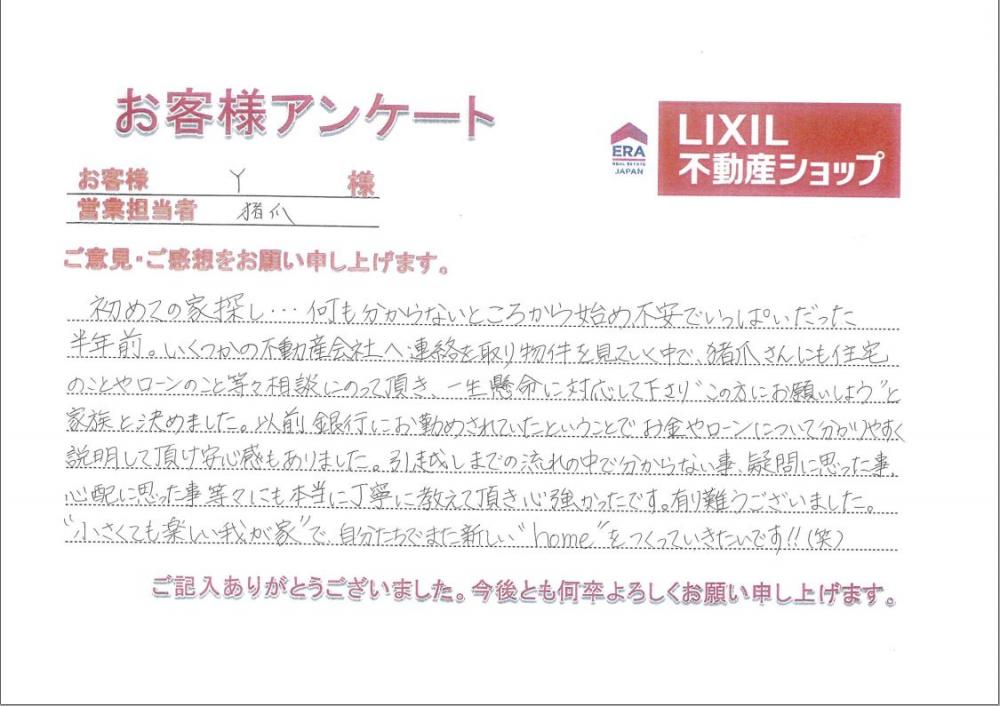 お客様アンケート
ERA
REAL ESTATE
JAPAN
LIXIL
不動産ショップ
お客様 Y 様
営業担当者 猪爪
ご意見・ご感想をお願い申し上げます。
初めての家探し…何も分からないところから始め不安でいっぱいだった
半年前。いくつかの不動産会社へ連絡を取り物件を見ていく中で、猪爪さんにも住宅
のことやローンのこと等々相談にのって頂き、一生懸命に対応して下さり“この方にお願いしよう”と
家族と決めました。以前銀行にお勤めされていたということでお金やローンについて分かりやすく
説明して頂け安心感もありました。引越しまでの流れの中で分からない事、疑問に思った事、
心配に思った事等々にも本当に丁寧に教えて頂き心強かったです。有り難うございました。
“小さくても楽しい我が家”で、自分たちでまた新しい“home”をつくっていきたいです!!(笑)
ご記入ありがとうございました。今後とも何卒よろしくお願い申し上げます。